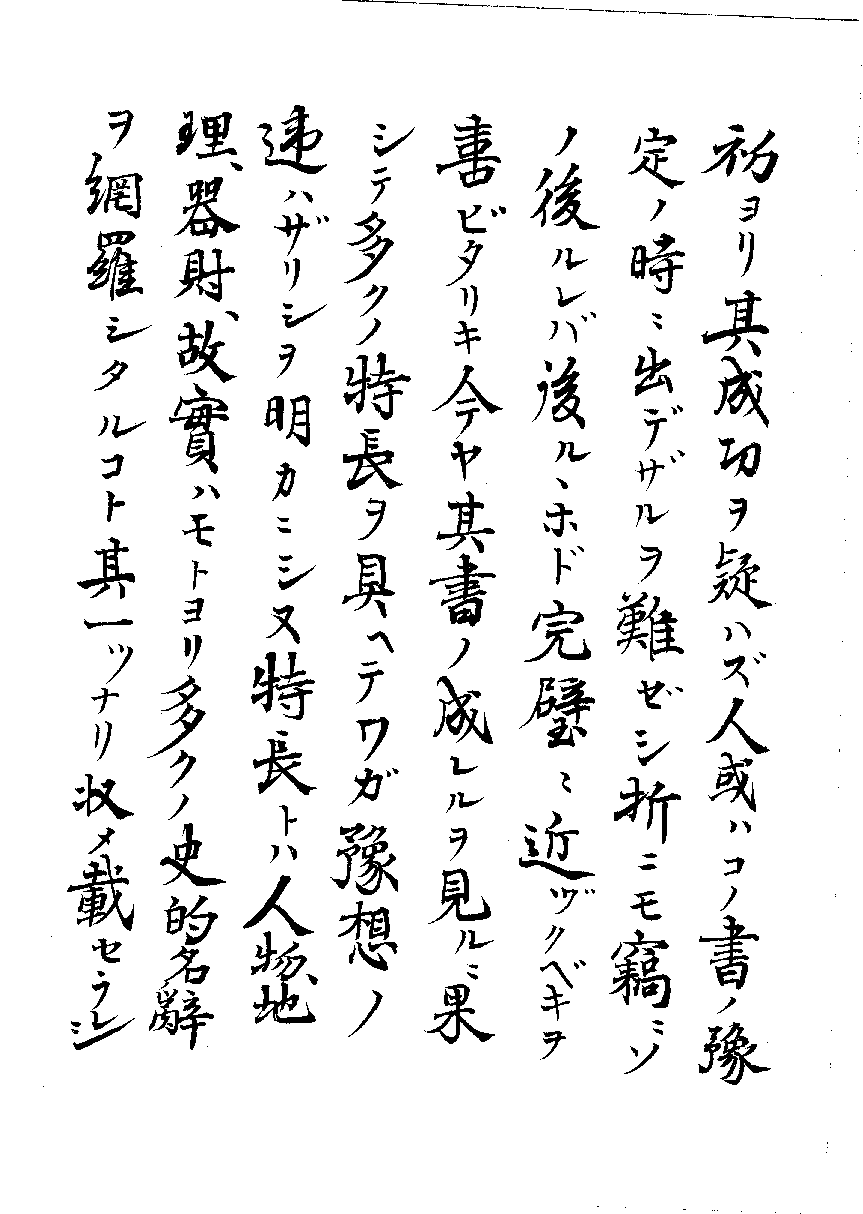 初ヨリ其成功ヲ疑ハズ人或ハコノ書ノ豫
定ノ時ニ出デザルヲ難ゼシ折ニモ竊ニソ
ノ後ルレバ後ルヽホド完璧ニ近ヅクベキヲ
喜ビタリキ今ヤ其書ノ成レルヲ見ルニ果
シテ多クノ特長ヲ具ヘテワガ豫想ノ
違ハザリシヲ明カニシヌ特長トハ人物、地
理、器財、故實ハモトヨリ多クノ史的名辭
ヲ網羅シタルコト其一ツナリ収メ載セラレシ